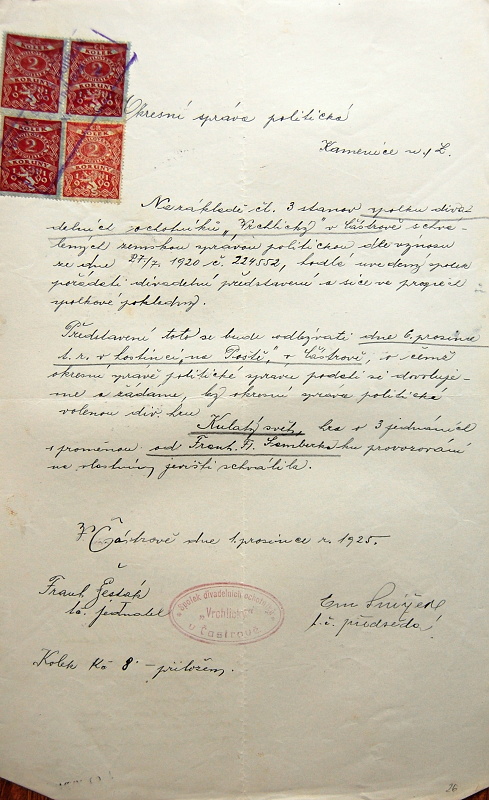 ČR.
KOLEK
2
KORUNY
1919
ČR.
KOLEK
2
KORUNY
1919
ČR.
KOLEK
2
KORUNY
1919
ČR.
KOLEK
2
KORUNY
1919
Okresní správa politická
Kamenice n./L.
Na základě čl. 3 stanov spolku diva-
delních ochotníků „Vrchlický" v Částrově schvá-
lených zemskou správou politickou dle výnosu
ze dne 27/7. 1920 č. 224552, hodlá uvedený spolek
pořádati divadelní představení a sice ve prospěch
spolkové pokladny.
Představení toto se bude odbývati dne 6. prosince
t. r. v hostinci „na Poště" v Částrově, o čemž
okresní správě politické zprávu podati si dovoluje-
me a žádáme, by okresní správa politická
volenou div. hru
Kulatý svět, hra o 3 jednáních
s proměnou od Frant. F. Šamberka ku provozování
na vlastním jevišti schválila.
V Částrově dne 1. prosince r. 1925.
Frant.
t. č. jednatel
Spolek divadelních ochotníků
„Vrchlický"
v Častrově
Em
t. č. předseda
Kolek Kč 8 - přiložen.
26